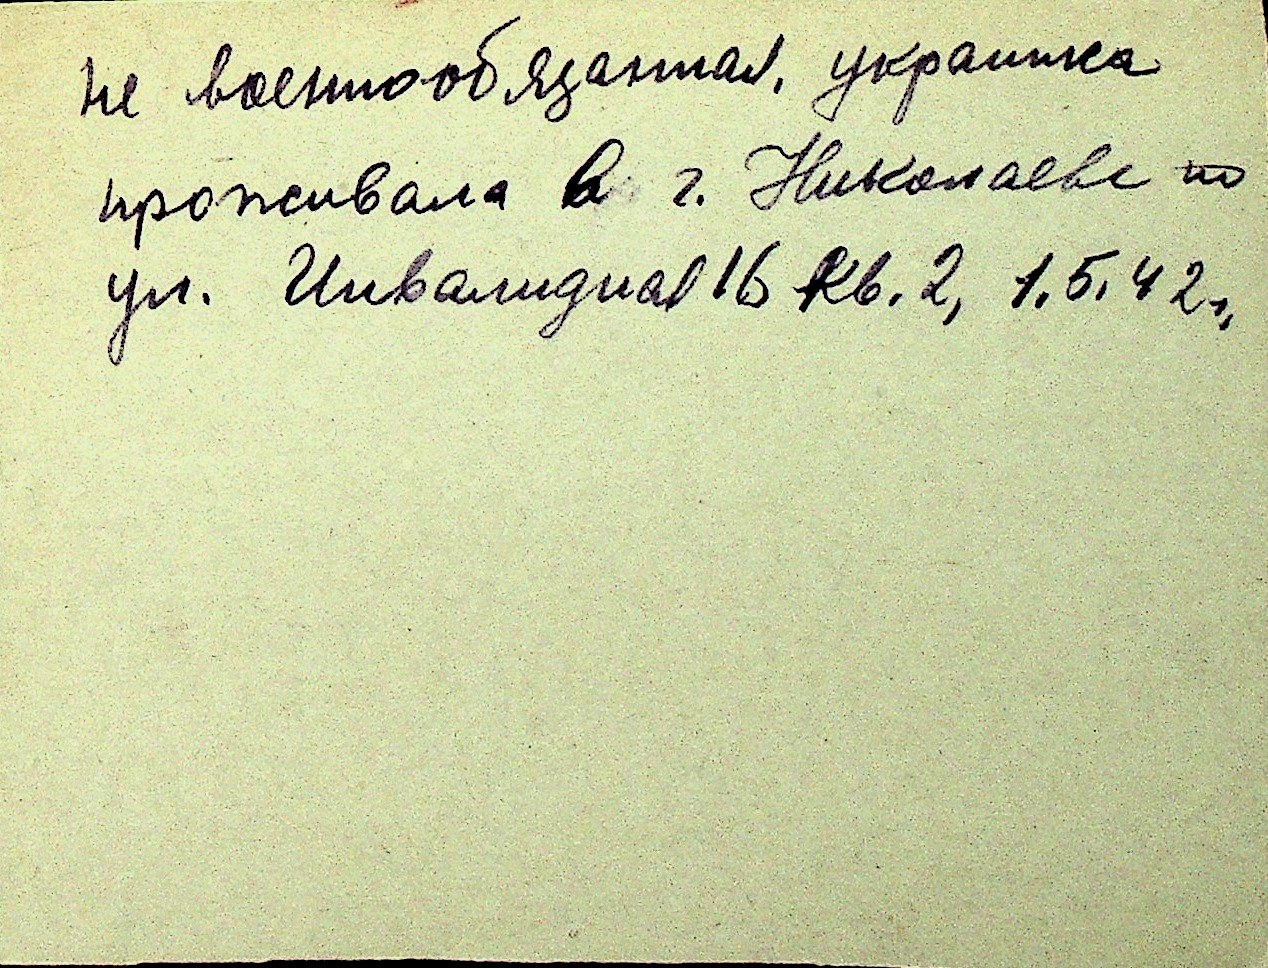 не военнообязанная, украинка
проживала в г. Николаеве по
ул. Инвалидная 16 кв. 2, 1.5.42 г.,